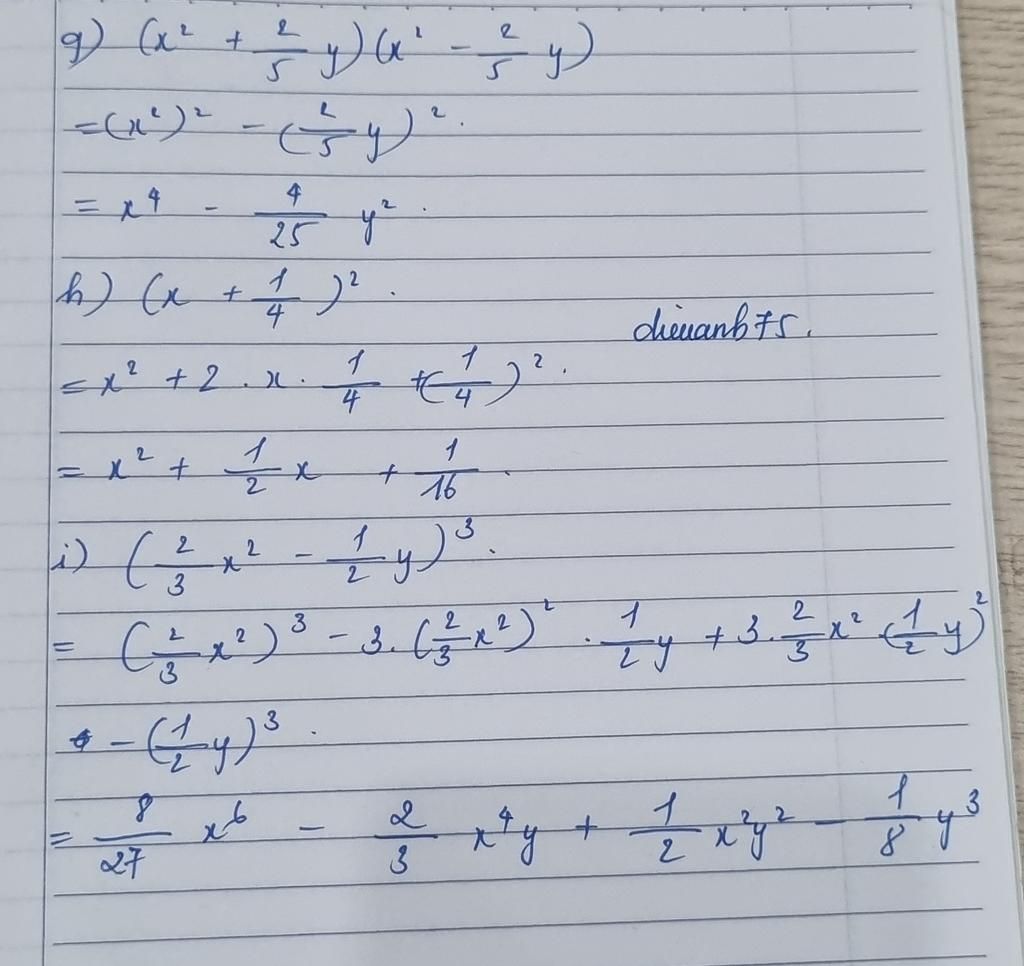 g) (x² + 2/5 y)(x² - 2/5 y)
= (x²)² - (2/5 y)².
= x⁴ - 4/25 y².
h) (x + 1/4)².
dieuanb75.
= x² + 2 . x . 1/4 + (1/4)².
= x² + 1/2 x + 1/16.
i) (2/3 x² - 1/2 y)³.
= (2/3 x²)³ - 3. (2/3 x²)² . 1/2 y + 3. 2/3 x² . (1/2 y)²
- (1/2 y)³.
= 8/27 x⁶ - 2/3 x⁴y + 1/2 x²y² - 1/8 y³